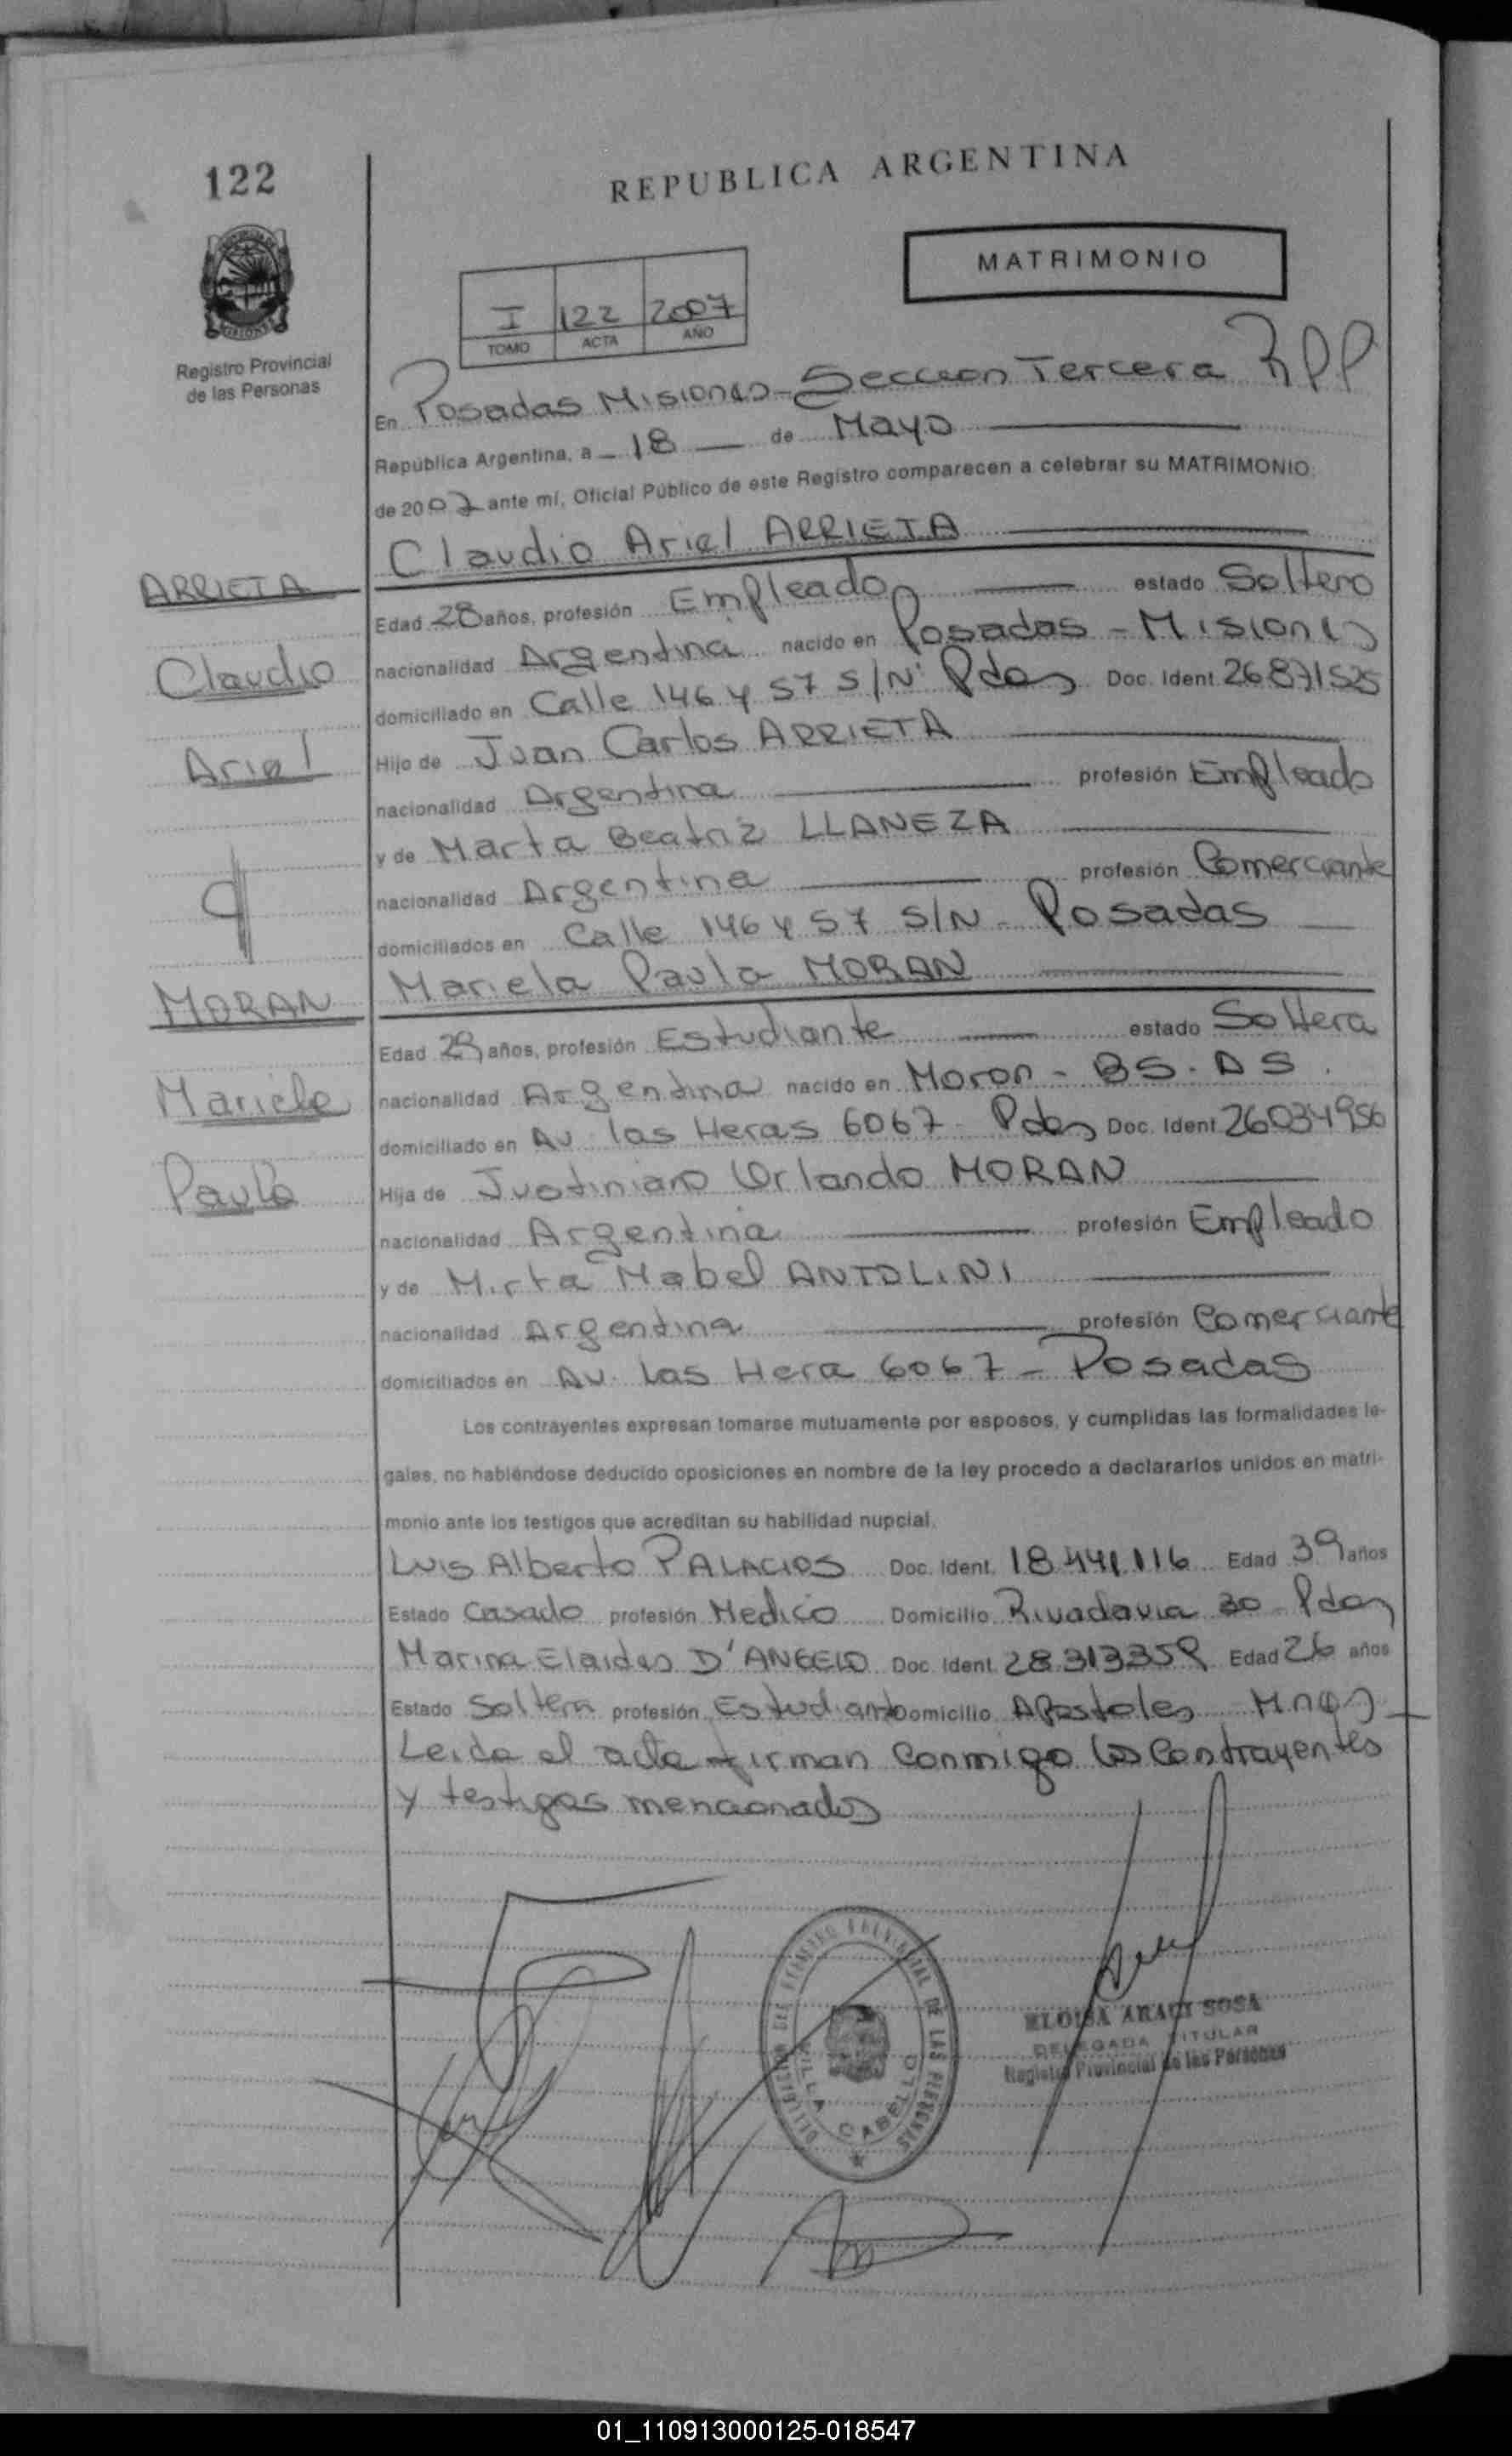 122
REPUBLICA ARGENTINA
MATRIMONIO
I 122 2007
TOMO ACTA AÑO
Registro Provincial
de las Personas
En Posadas Misiones - Seccion Tercera RPP
República Argentina, a 18 de Mayo
de 2007 ante mí, Oficial Público de este Registro comparecen a celebrar su MATRIMONIO:
Claudio Ariel ARRIETA
ARRIETA
Edad 28 años, profesión Empleado estado Soltero
nacionalidad Argentina nacido en Posadas - Misiones
Claudio
domiciliado en Calle 146 y 57 S/N° Pdas Doc. Ident. 26871525
Hijo de Juan Carlos ARRIETA
Ariel
nacionalidad Argentina profesión Empleado
y de Marta Beatriz LLANEZA
nacionalidad Argentina profesión Comerciante
domiciliados en Calle 146 y 57 S/N - Posadas
Mariela Paula MORAN
MORAN
Edad 29 años, profesión Estudiante estado Soltera
nacionalidad Argentina nacido en Moron - BS. AS.
Mariela
domiciliado en Av. las Heras 6067 - Pdas Doc. Ident. 26034956
Paula
Hija de Justiniano Orlando MORAN
nacionalidad Argentina profesión Empleado
y de Mirta Mabel ANTOLINI
nacionalidad Argentina profesión Comerciante
domiciliados en Av. Las Hera 6067 - Posadas
Los contrayentes expresan tomarse mutuamente por esposos, y cumplidas las formalidades le-
gales, no habiéndose deducido oposiciones en nombre de la ley procedo a declararlos unidos en matri-
monio ante los testigos que acreditan su habilidad nupcial.
Luis Alberto PALACIOS Doc. Ident. 18.441.116 Edad 39 años
Estado Casado profesión Medico Domicilio Rivadavia 30 - Pdas
Marina Elaides D'ANGELO Doc. Ident. 28.313359 Edad 26 años
Estado Soltera profesión Estudiante Domicilio Apostoles Mnes
Leida el acta firman conmigo los Contrayentes
y testigos mencionados
DELEGACION DEL REGISTRO PROVINCIAL DE LAS PERSONAS
VILLA CABELLO
ELOISA ARACI SOSA
DELEGADA TITULAR
Registro Provincial de las Personas
01_110913000125-018547